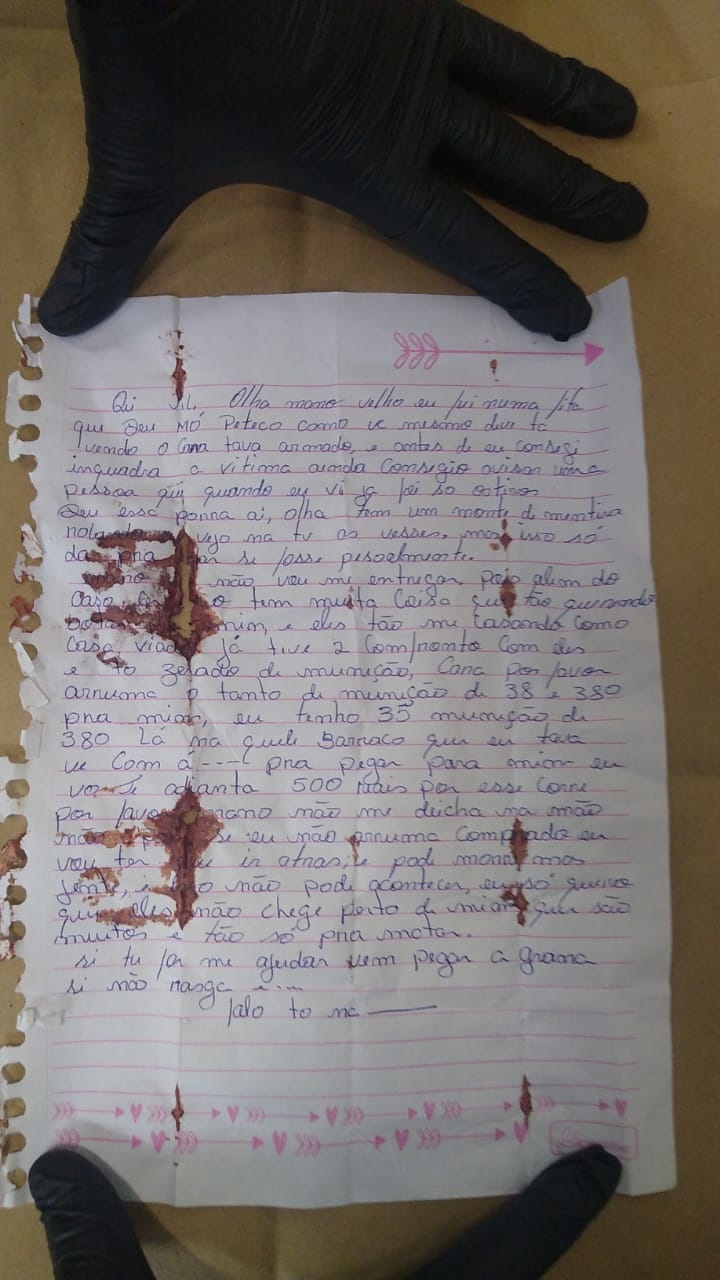 Oi Olha mano velho eu fui numa fita
que Deu MÓ Peteco como vc mesmo deve tá
vendo o Cana tava armado, e antes de eu consegi
inquadra a vitima ainda Consegio avisar uma
pessoa que quando eu vi ja foi so os tiros
Deu essa porra ai, olha tem um monte de mentira
vejo na tv as vesses, mas isso só
da pra se fosse pesoelmente.
mano não vou me entregar, pois alem do
Caso tem muita Coisa que tão querendo
mim, e eles tão me Casando como
Casa viado já tive 2 Comfronto Com eles
e tô zerado de munição, Cana por favor
arruma o tanto de munição de 38 e 380
pra mim, eu tenho 35 munição de
380 Lá na quele Barraco que eu tava
ve Com a ---- pra pegar para mim eu
vo Te adianta 500 mais por esse Corre
por favor mano não me deicha na mão
não se eu não arruma Comprado eu
vou ter que ir atras, e pode morre mas
jente, e não pode acontecer, eu só quero
que eles não chege perto de mim que são
muitos e tão só pra matar.
si tu for me ajudar vem pegar a grana
si não rasga
falo to na ——